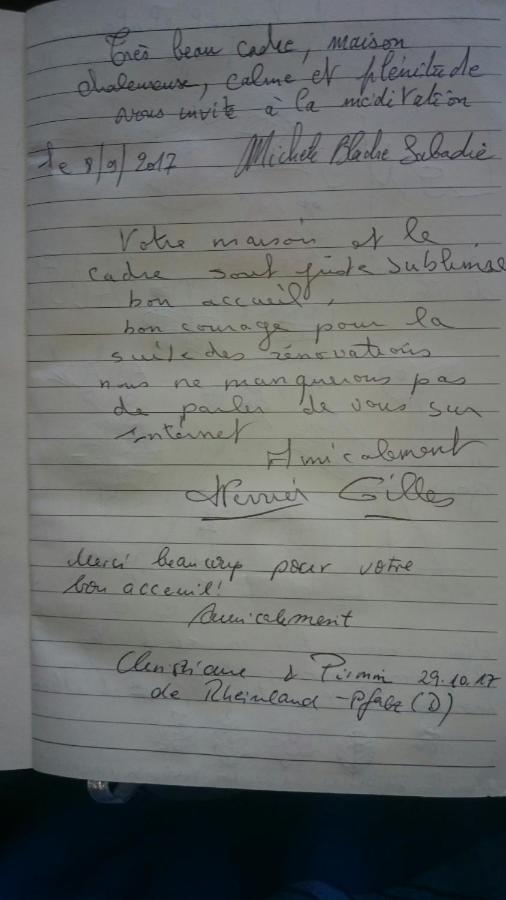 Très beau cadre, maison
chaleureuse, calme et plénitude
vous invite à la méditation
le 8/9/2017 Michele
Votre maison et le
cadre sont juste sublimse
bon accueil,
bon courage pour la
suite des rénovations
nous ne manquerons pas
de parler de vous sur
internet
Amicalement
Gilles
Merci beaucoup pour votre
bon acceuil!
Amicalement
Christiane & Pirmin 29.10.17
de Rheinland-Pfalz (D)